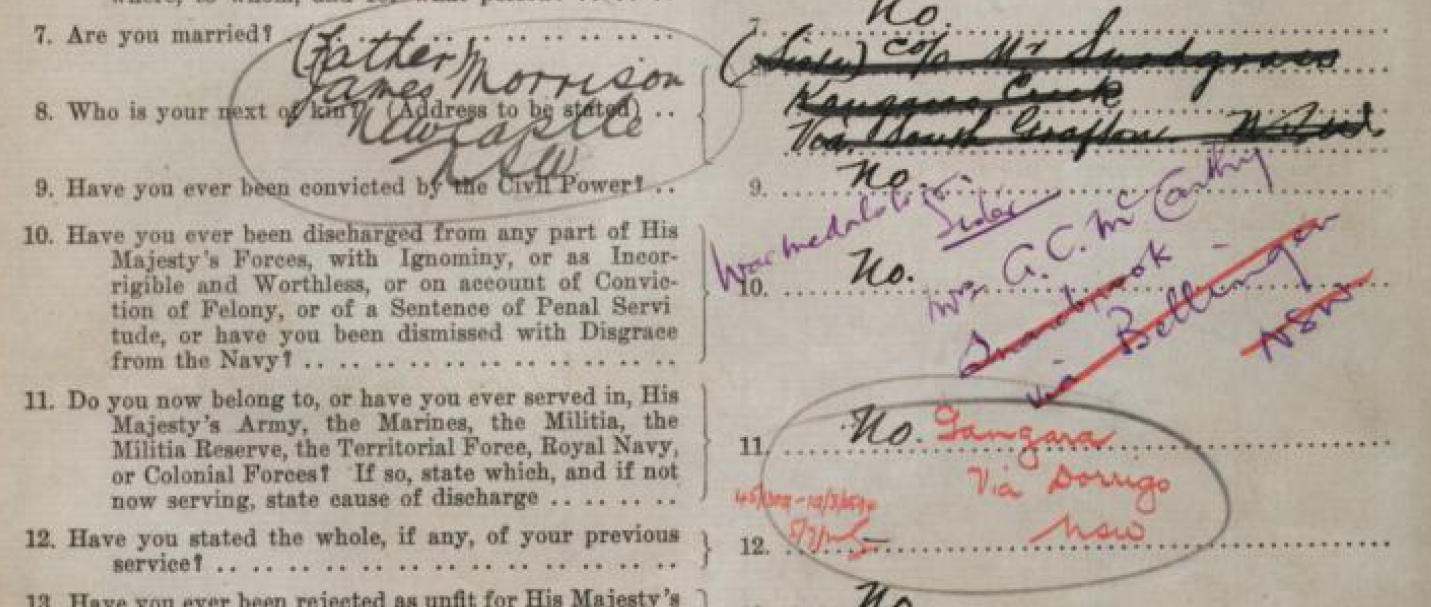 7. Are you married? No.
(Father)
James Morrison
8. Who is your next of kin? (Address to be stated)
Newcastle
NSW
(Sister) c/o Mr Snodgrass
Kangaroo Creek
Via South Grafton
9. Have you ever been convicted by the Civil Power? 9. No.
War medals to
Sister
Mrs G. C. McCarthy
via Bellinger
NSW
10. Have you ever been discharged from any part of His
Majesty's Forces, with Ignominy, or as Incor-
rigible and Worthless, or on account of Convic-
tion of Felony, or of a Sentence of Penal Servi
tude, or have you been dismissed with Disgrace
from the Navy? 10. No.
11. Do you now belong to, or have you ever served in, His
Majesty's Army, the Marines, the Militia, the
Militia Reserve, the Territorial Force, Royal Navy,
or Colonial Forces? If so, state which, and if not
now serving, state cause of discharge
11. No. Gangara
Via Dorrigo
NSW
12. Have you stated the whole, if any, of your previous
service? 12.
13. Have you ever been rejected as unfit for His Majesty's
No